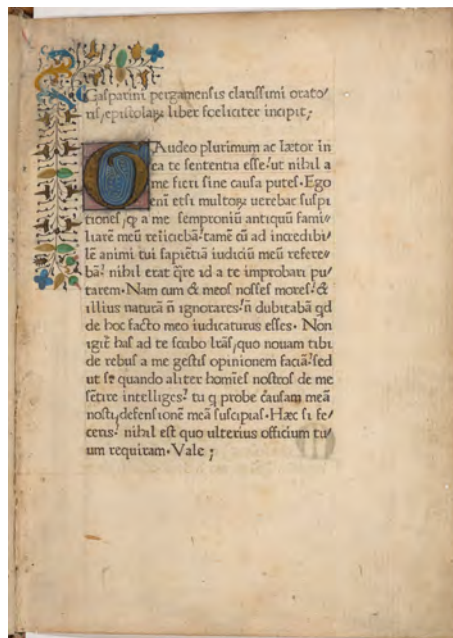 Gasparini pergamensis clarissimi orato/
ris, epistolaꝝ liber foeliciter incipit;
GAudeo plurimum ac lætor in
ea te sententia esse, ut nihil a
me fieri sine causa putes. Ego
eni etsi multoꝝ uerebar suspi
tiones, ꝙ a me semproniũ antiquũ fami/
liarẽ meũ reiiciebã, tamẽ cũ ad incredibi/
lẽ animi tui sapiẽtiã iudiciũ meũ refere/
bã, nihil erat q̃re id a te improbari pu/
tarem. Nam cum & meos nosses mores, &
illius naturã ñ ignorares, ñ dubitabã qd
de hoc facto meo iudicaturus esses. Non
igit̃ has ad te scribo lr̃as, quo nouam tibi
de rebus a me gestis opinionem faciã, sed
ut si quando aliter homĩes nostros de me
sẽtire intelliges, tu q probe causam meã
nosti, defensionẽ meã suscipias. Hæc si fe/
ceris, nihil est quo ulterius officium tu/
um requiram. Vale;